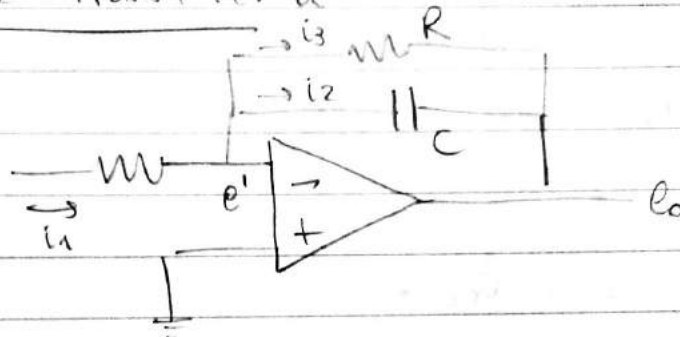 i3 R
i2
C
e' -
i1 + eo